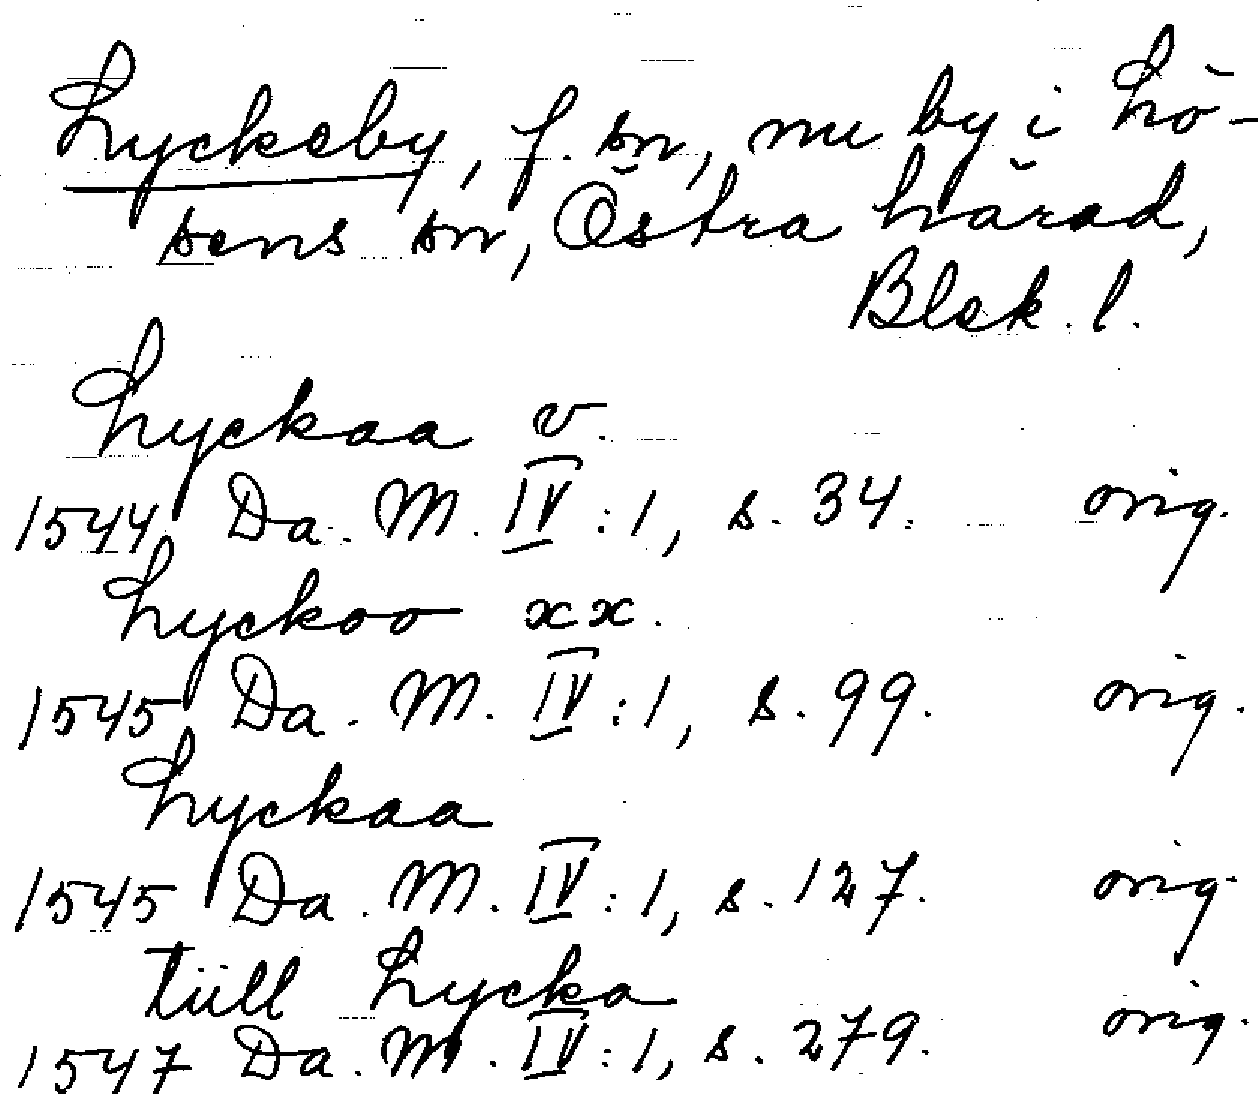 Lyckeby, f. sn, nu by i Lö-
sens sn, Östra härad,
Blek. l.
Lyckaa v.
1544 Da. M. IV:1, s. 34. orig.
Lyckoo xx.
1545 Da. M. IV:1, s. 99. orig.
Lyckaa
1545 Da. M. IV:1, s. 127. orig.
tiill Lycka
1547 Da. M. IV:1, s. 279. orig.